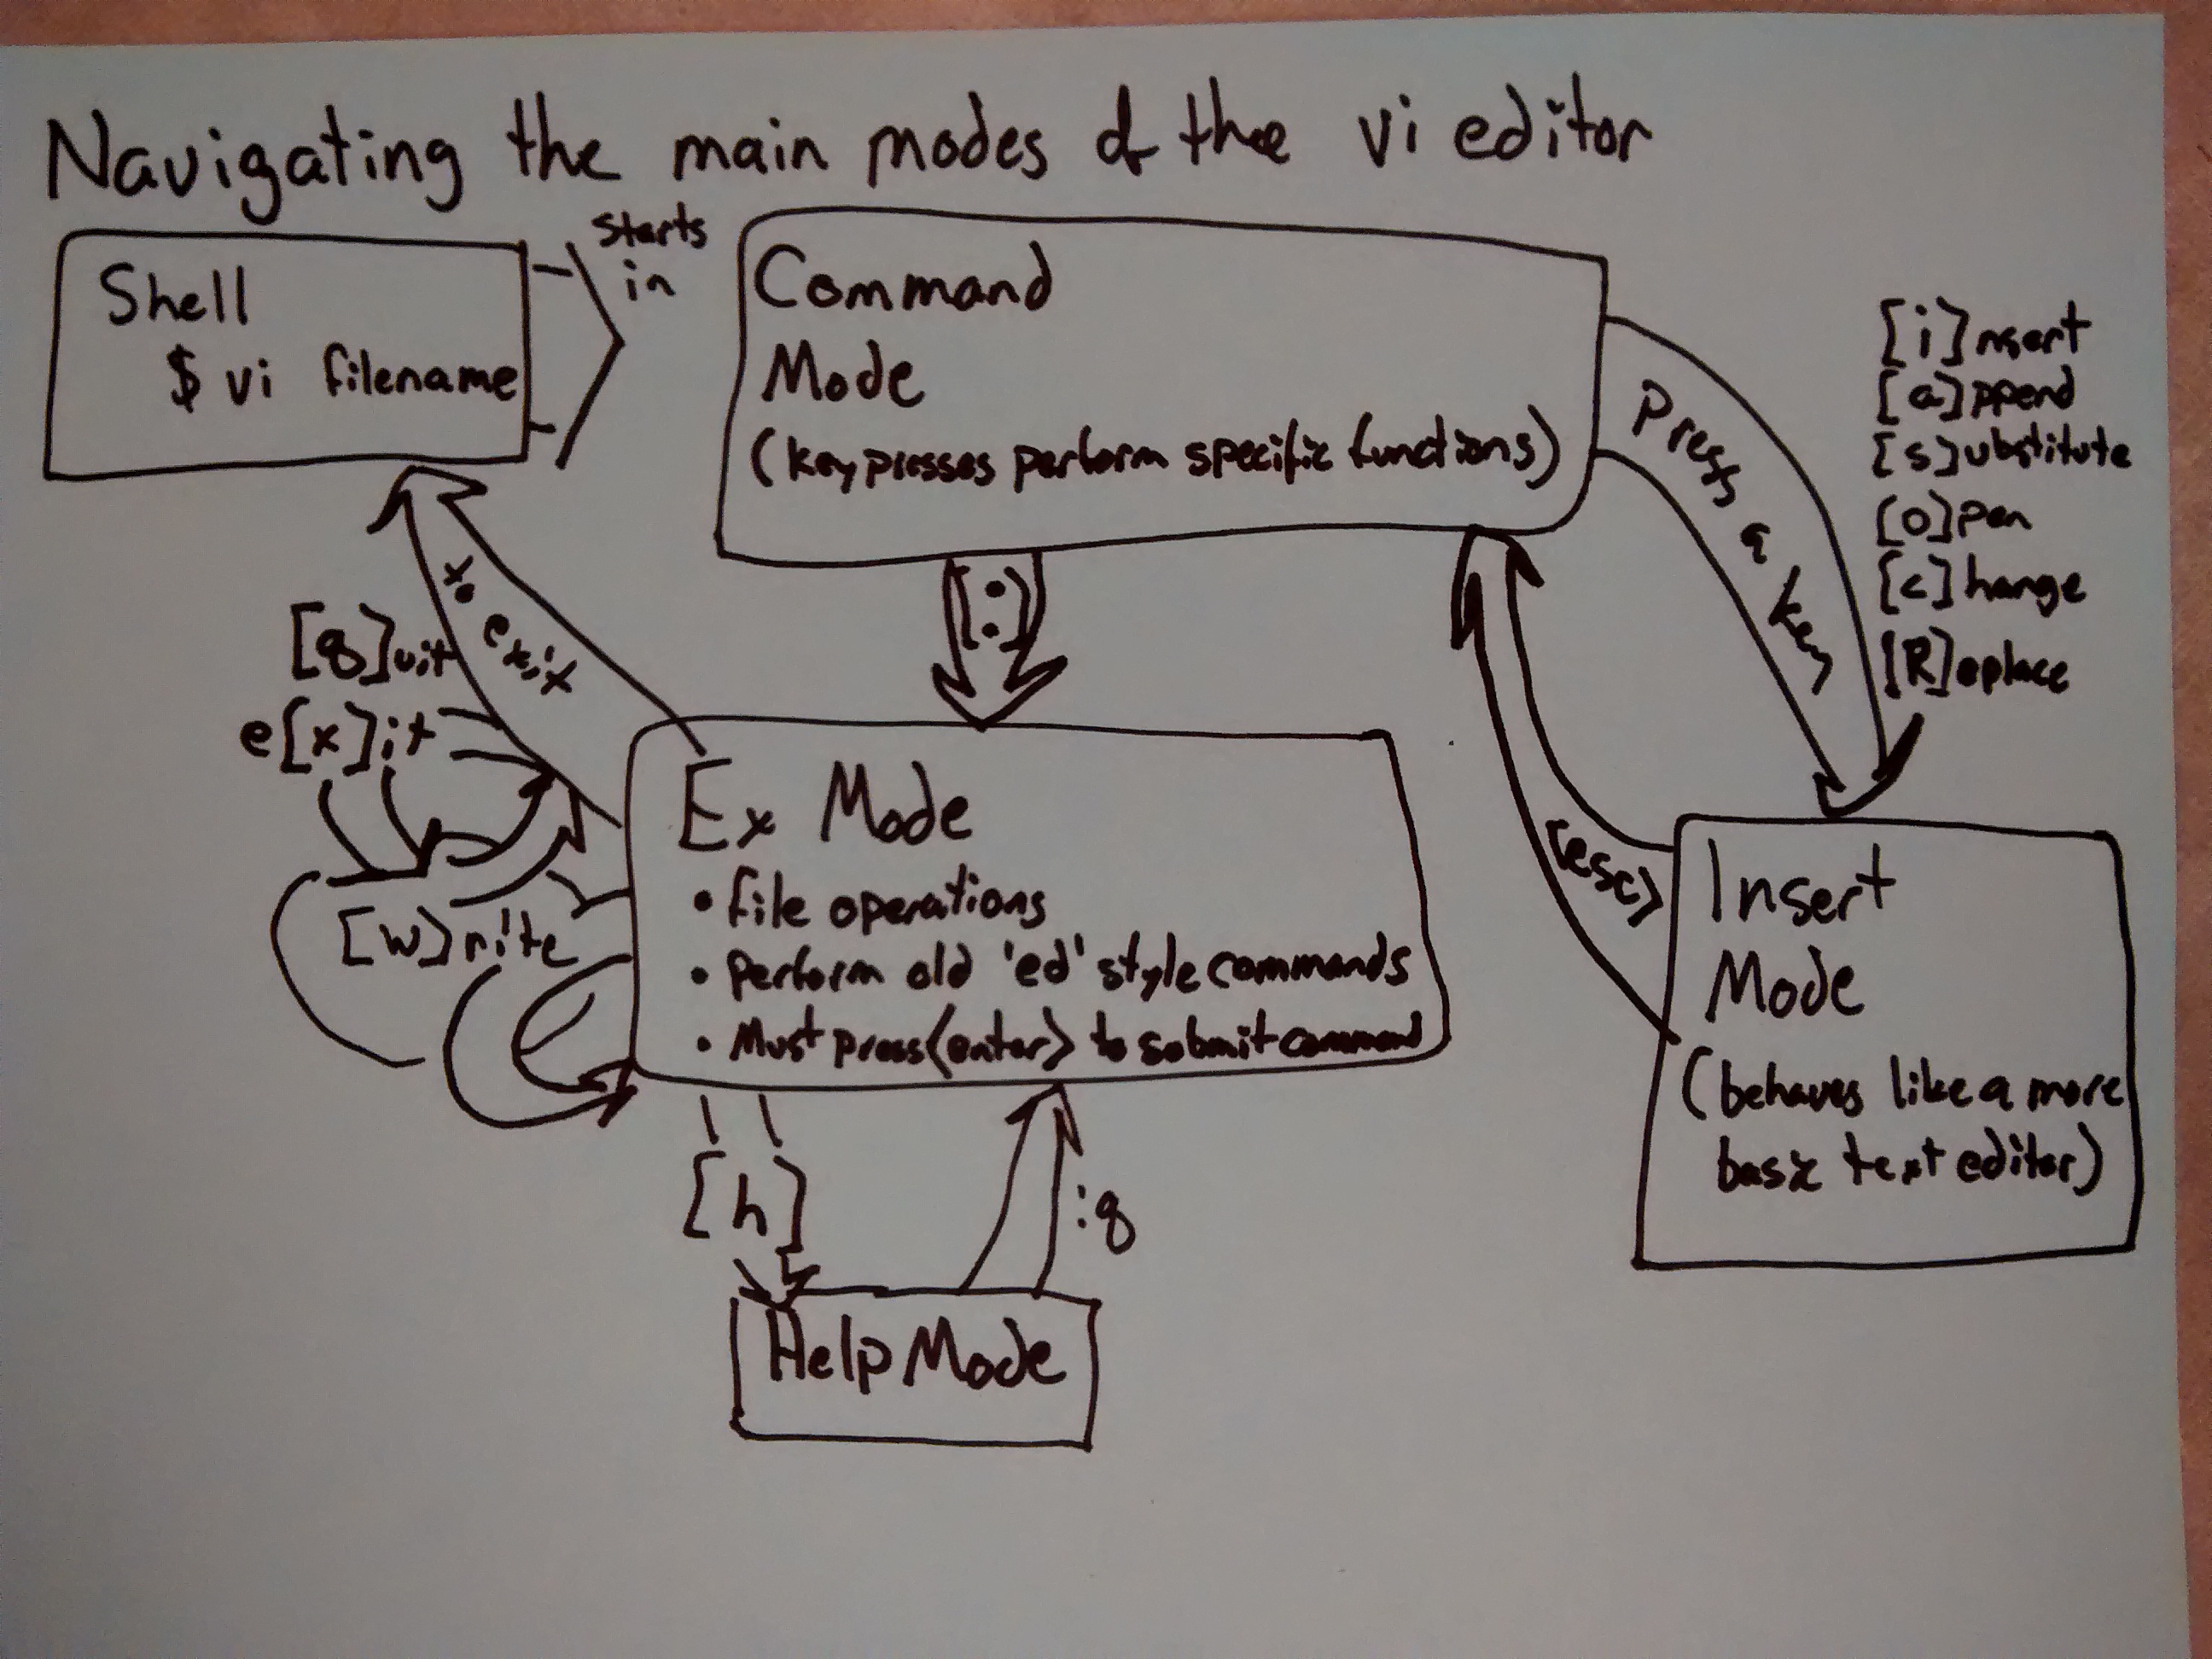 Navigating the main modes of the vi editor
Shell
$ vi filename
starts
in
Command
Mode
(key presses perform specific functions)
Press a key
[i]nsert
[a]ppend
[s]ubstitute
[o]pen
[c]hange
[R]eplace
[:]
to exit
[q]uit
e[x]it
[w]rite
Ex Mode
• file operations
• perform old 'ed' style commands
• Must press <enter> to submit command
<esc>
Insert
Mode
(behaves like a more
basic text editor)
[h]
:q
Help Mode